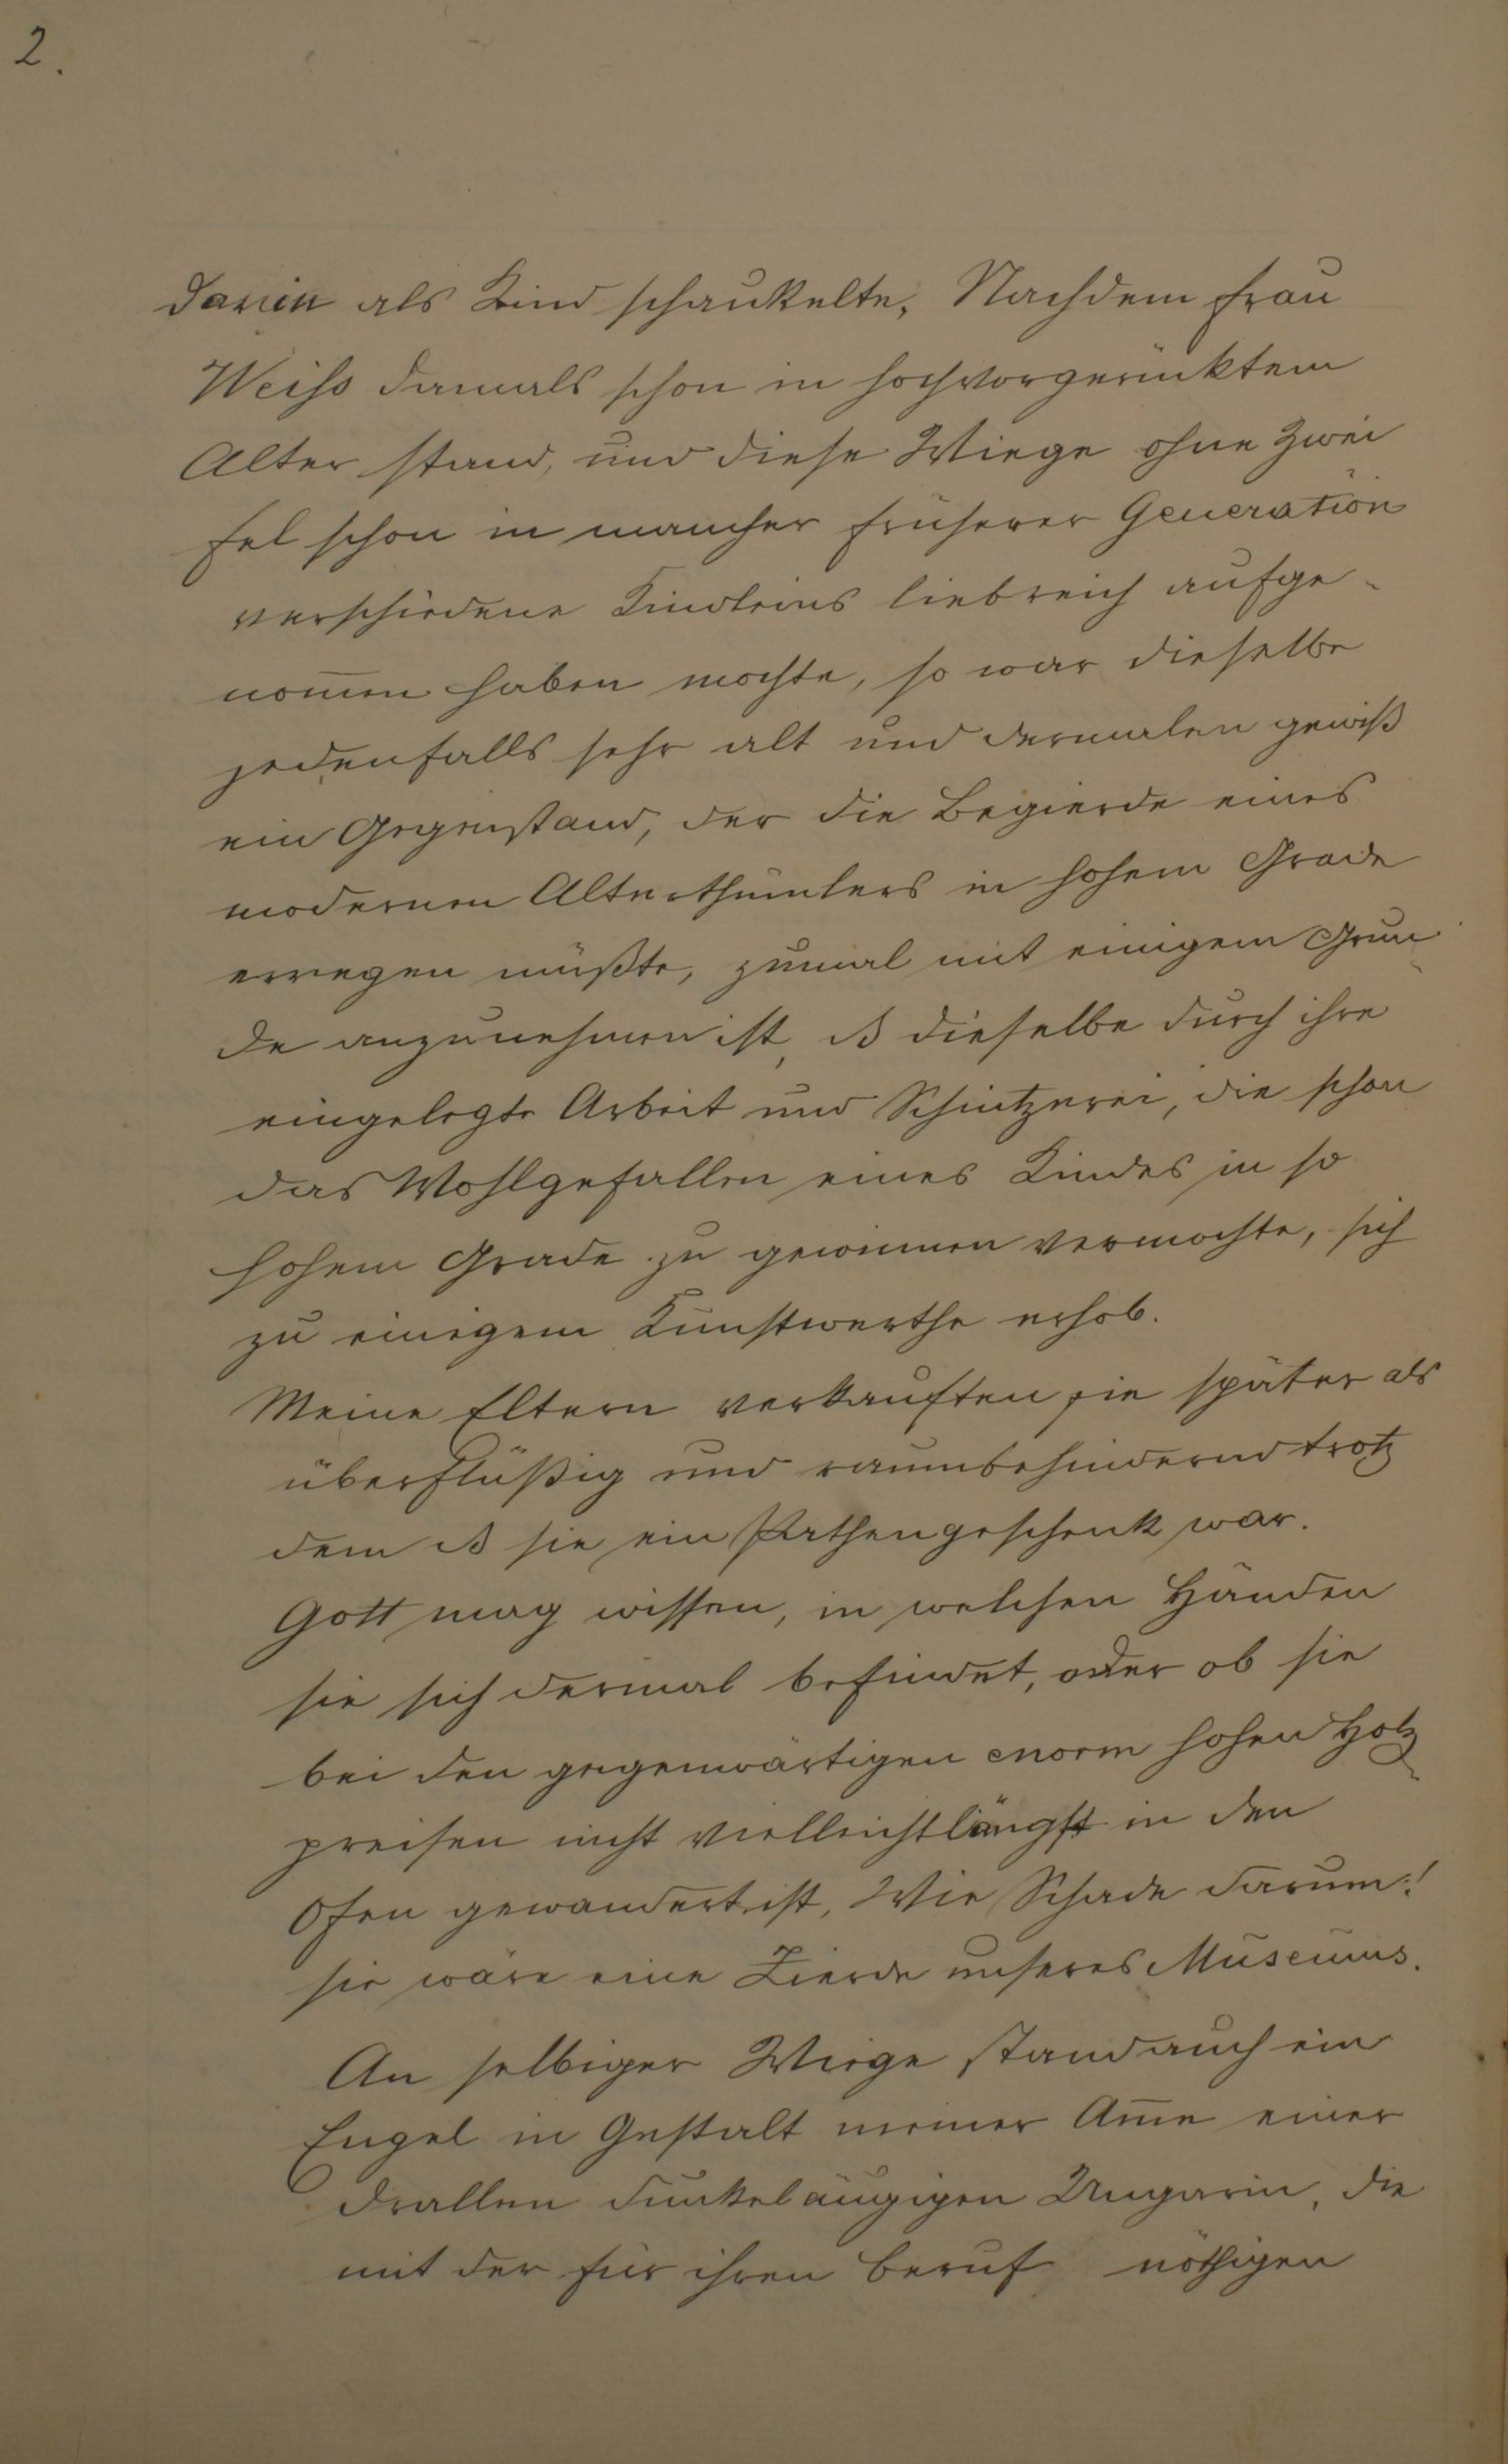 2.
darin als Kind schaukelte. Nachdem Frau
Weiss damals schon in hochvorgerücktem
Alter stand, und diese Wiege ohne Zwei
fel schon in mancher früherer Generation
verschiedene Kindleins liebreich aufge-
nom̅en haben mochte, so war dieselbe
jedenfalls sehr alt und dermalen gewiß
ein Gegenstand, der die Begierde eines
modernen Alterthümlers in hohem Grade
erregen müßte, zumal mit einigem Grun-
de anzunehmen ist, ß dieselbe durch ihre
eingelegte Arbeit und Schnitzerei, die schon
das Wohlgefallen eines Kindes in so
hohem Grade zu gewinnen vermochte, sich
zu einigem Kunstwerthe erhob.
Meine Eltern verkauften sie später als
überflüßig und raumbehindernd trotz
dem ß sie ein Pathengeschenk war.
Gott mag wissen, in welchen Händen
sie sich dermal befindet, oder ob sie
bei den gegenwärtigen enorm hohen Holz-
preisen nicht vielleicht längst in den
Ofen gewandert ist. Wie Schade darum!
sie wäre eine Zierde unseres Museums.
An selbiger Wiege stand auch ein
Engel in Gestalt meiner Am̅e einer
drallen dunkeläugigen Ungarin, die
mit der für ihren Beruf nöthigen